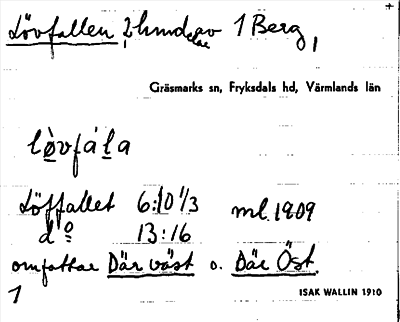 Lövfallen, 2 hmd av 1 Berg,
Gräsmarks sn, Fryksdals hd, Värmlands län
lòvfála
Löffallet 6:10 1/3 ml. 1909
do 13:16
omfattar Där väst o. Där Öst.
1
ISAK WALLIN 1910